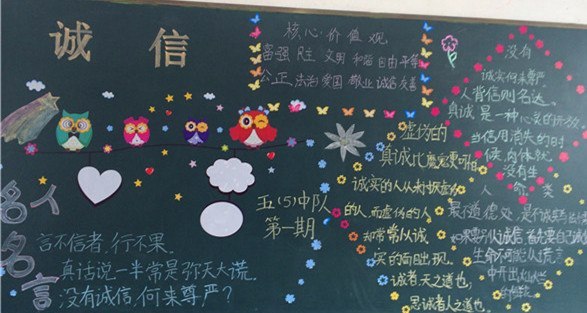 诚信
核心价值观
富强 民主 文明 和谐 自由 平等
公正 法治 爱国 敬业 诚信 友善
名人名言
言不信者,行不果。
真话说一半常是弥天大谎。
没有诚信,何来尊严?
五(5)中队
第一期
虚伪的
真诚比魔鬼更可怕
诚实的人从
的人,而虚伪的人
却常常以诚
实的面目出现。
诚者,天之道也,
思诚者人之道也。
没有
诚实何来尊严
人背信则名不达。
真诚是一种心灵的开放
当信用消失的时
候,肉体就
没有生
命 人类
最不道德处,是不诚实与
如果要别人诚信,首先要自己诚信
生命不可能从谎言
中开出灿烂
的鲜花